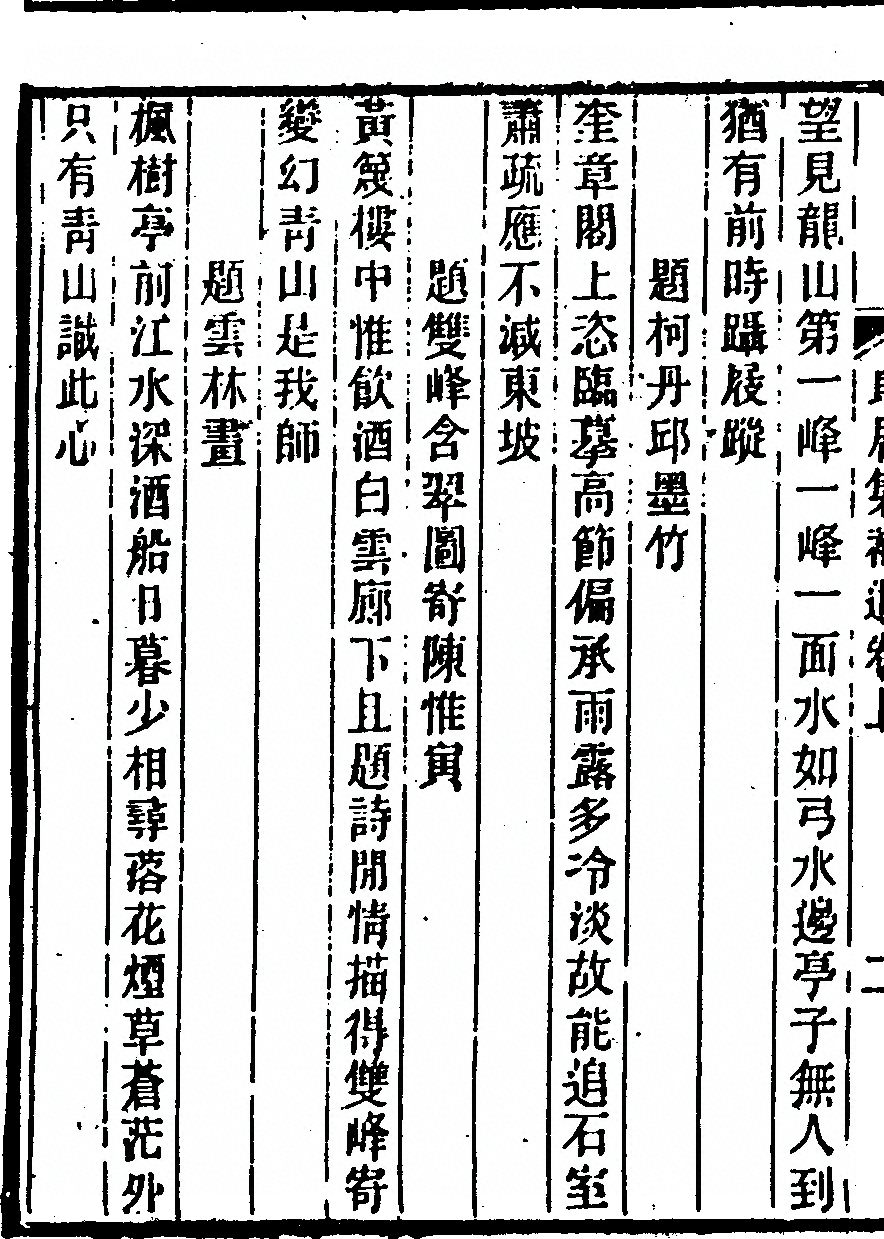 望見龍山第一峰一峰一面水如弓水邊亭子無人到
猶有前時躡屐蹤
題柯丹邱墨竹
奎章閣上恣臨摹高節偏承雨露多冷淡故能追石室
蕭疏應不減東坡
題雙峰含翠圖寄陳惟寅
黃篾樓中惟飲酒白雲廊下且題詩閒情描得雙峰寄
變幻青山是我師
題雲林畫
楓樹亭前江水深酒船日暮少相尋落花煙草蒼茫外
只有青山識此心